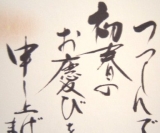 つつしんで
初春の
お慶びを
申し上げ